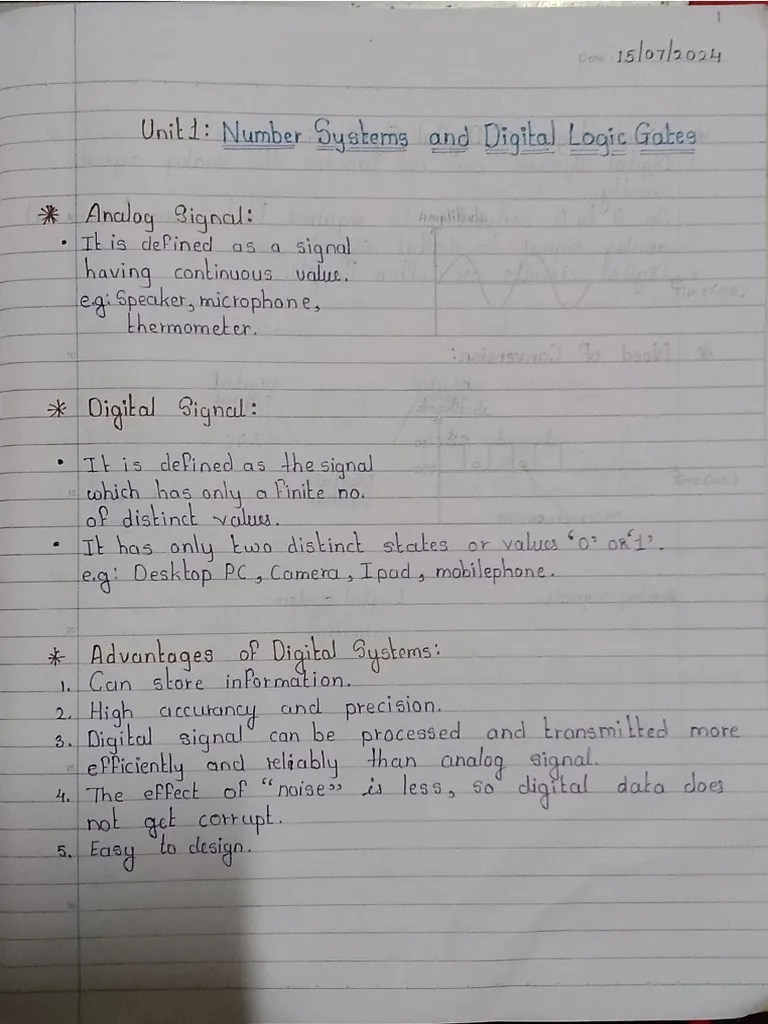 1
Date: 15/07/2024
Unit 1: Number Systems and Digital Logic Gates
* Analog Signal:
• It is defined as a signal
having continuous value.
e.g: Speaker, microphone,
thermometer.
* Digital Signal:
• It is defined as the signal
which has only a finite no.
of distinct values.
• It has only two distinct states or values ‘0’ or ‘1’.
e.g: Desktop PC, Camera, Ipad, mobilephone.
* Advantages of Digital Systems:
1. Can store information.
2. High accurancy and precision.
3. Digital signal can be processed and transmitted more
efficiently and reliably than analog signal.
4. The effect of “noise” is less, so digital data does
not get corrupt.
5. Easy to design.